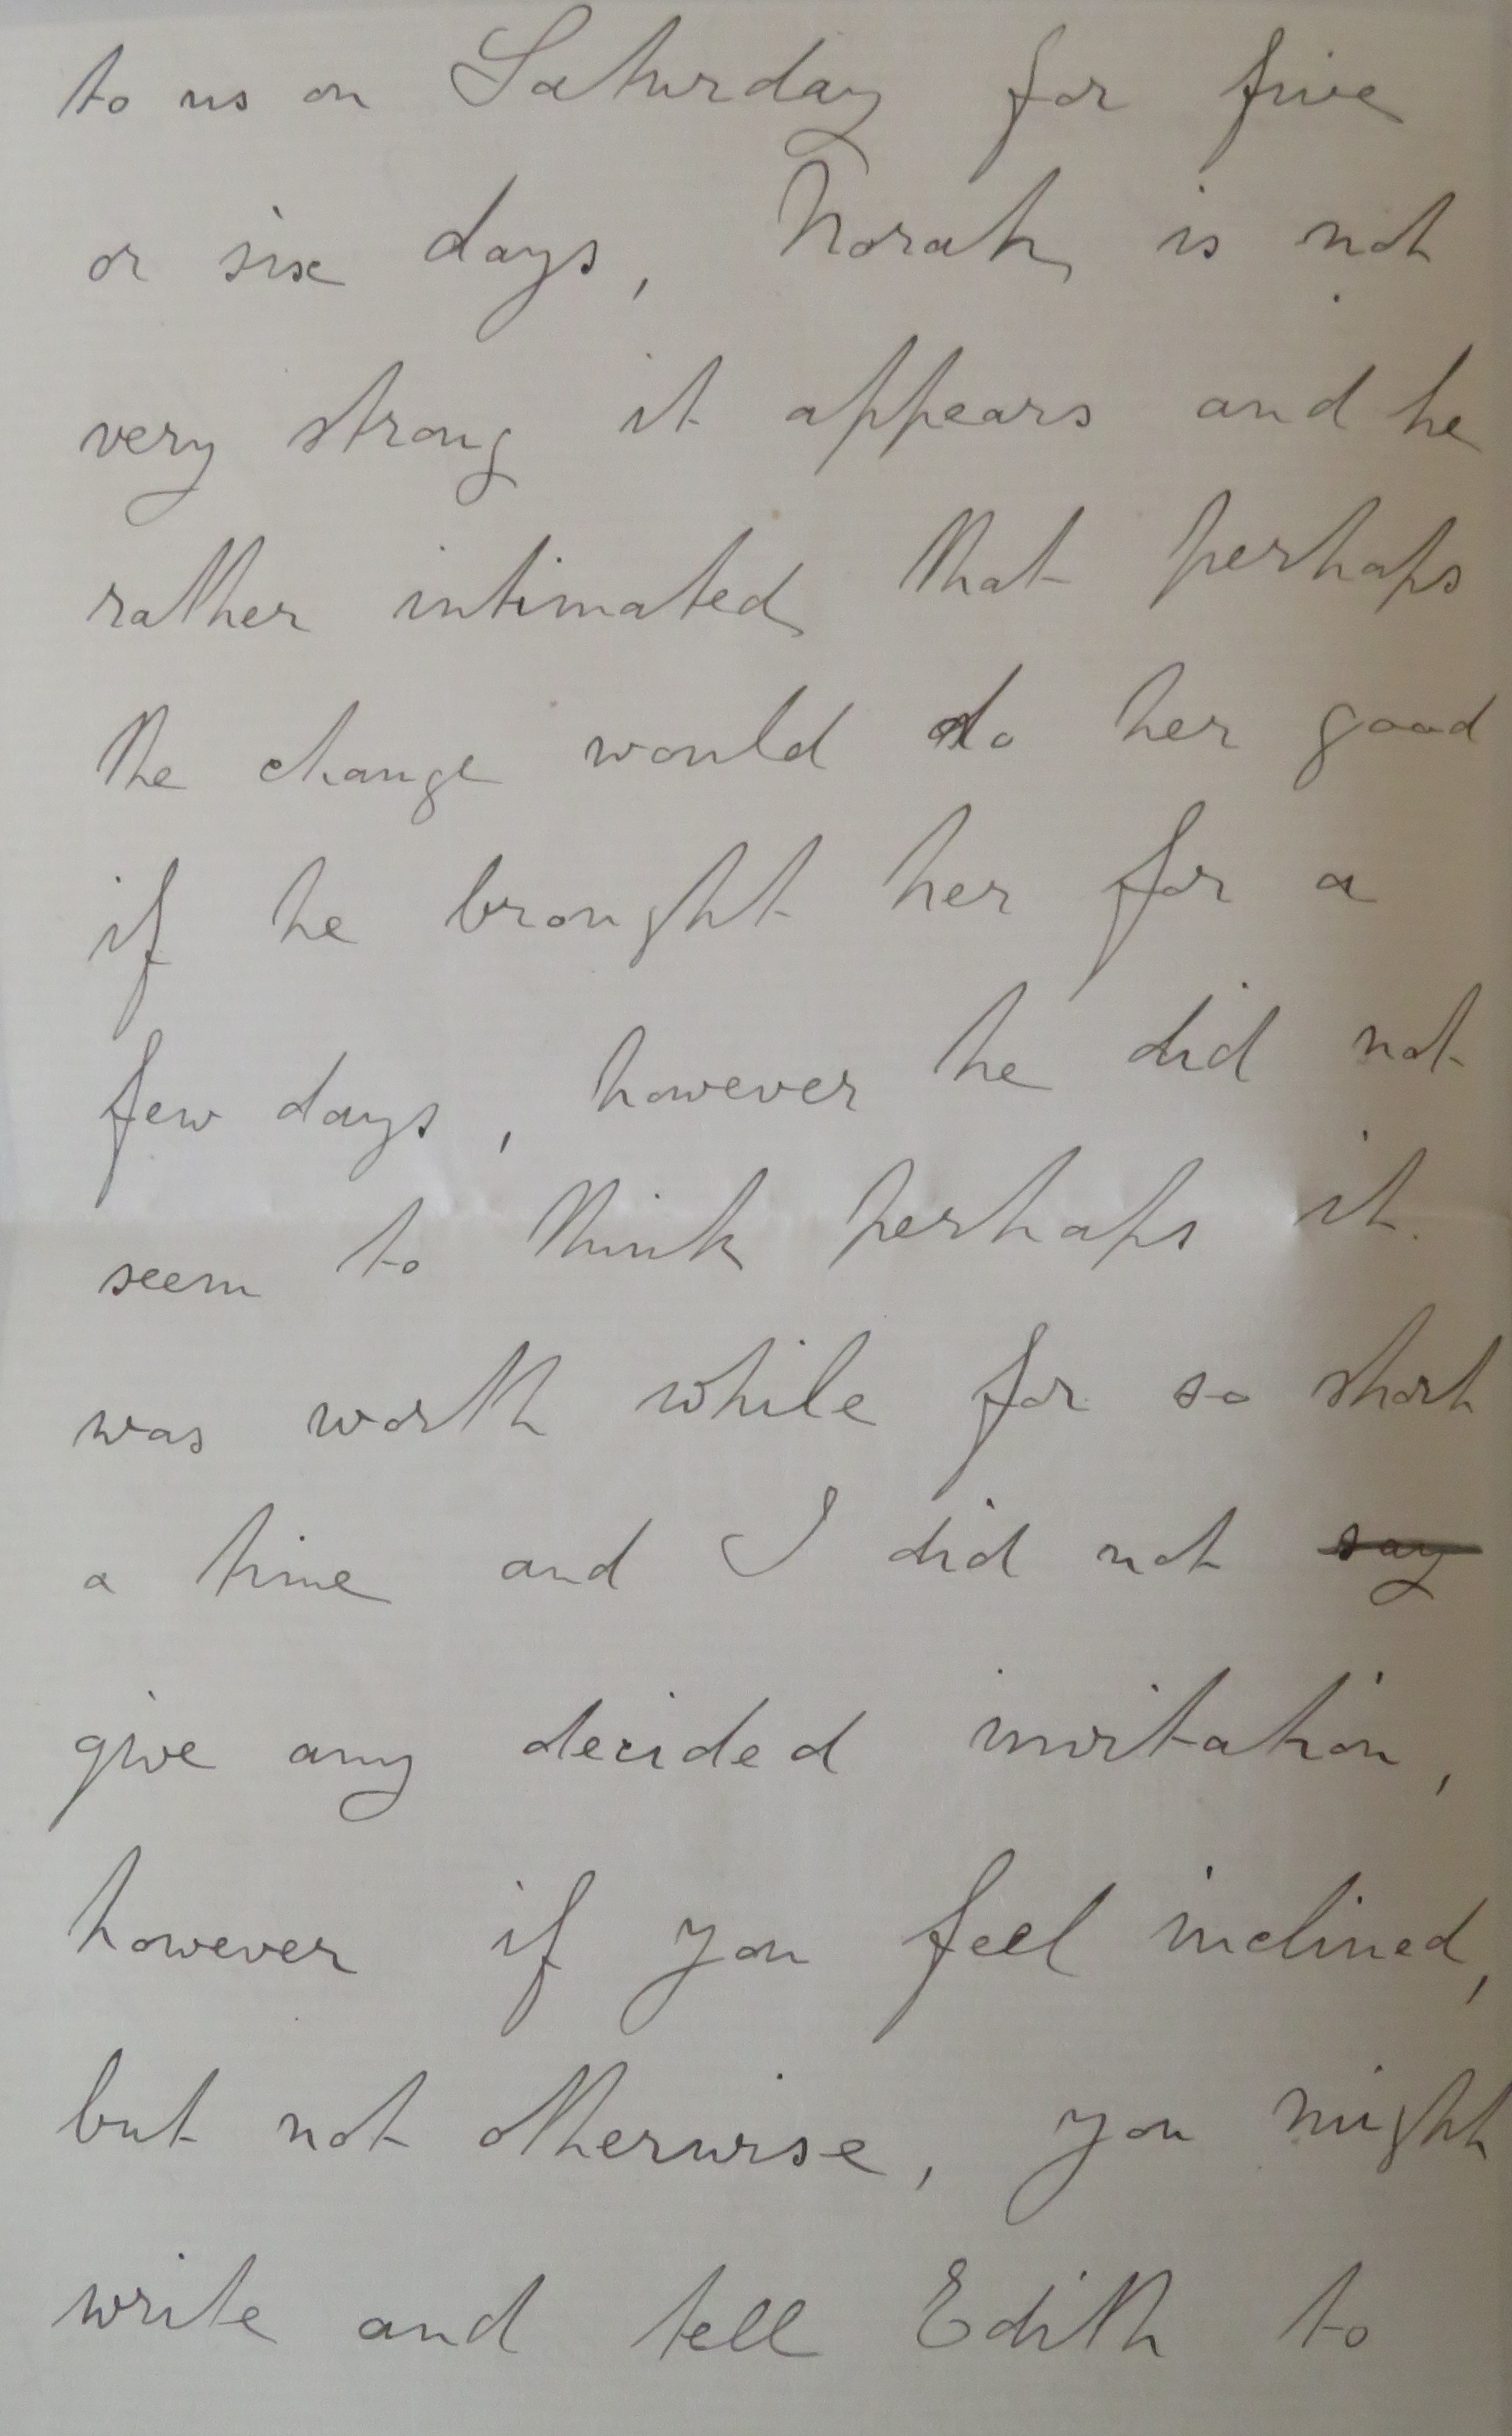 to us on Saturday for five
or six days, Norah is not
very strong it appears and he
rather intimated that perhaps
the change would do her good
if he brought her for a
few days, however he did not
seem to think perhaps it
was worth while for so short
a time and I did not say
give any decided invitation,
however if you feel inclined,
but not otherwise, you might
write and tell Edith to